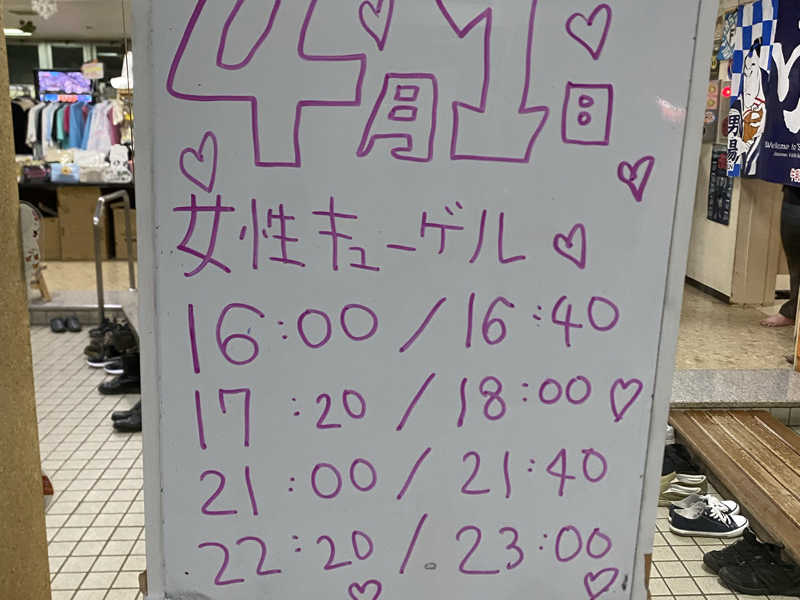 4月1日
女性キューゲル
16:00 / 16:40
17:20 / 18:00
21:00 / 21:40
22:20 / 23:00
男湯